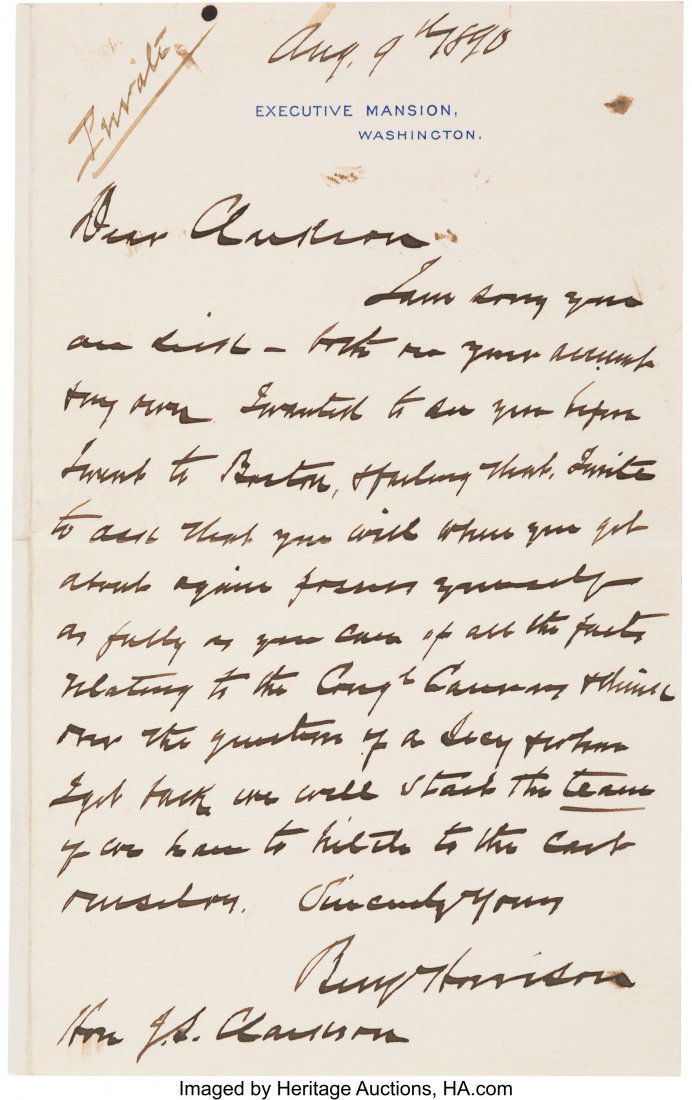 Private
Aug. 9th 1890
EXECUTIVE MANSION,
WASHINGTON.
Dear Clarkson
I am sorry you
are sick - both on your account
& my own. I wanted to see you before
I went to Boston, & failing that, I write
to ask that you will when you get
about again possess yourself
as fully as you can of all the facts
relating to the Congl Canvass & think
over the question of a Secy & when
I get back we will start the team
if we have to hitch to the cart
ourselves. Sincerely Yours
Benj Harrison
Hon J.S. Clarkson
Imaged by Heritage Auctions, HA.com